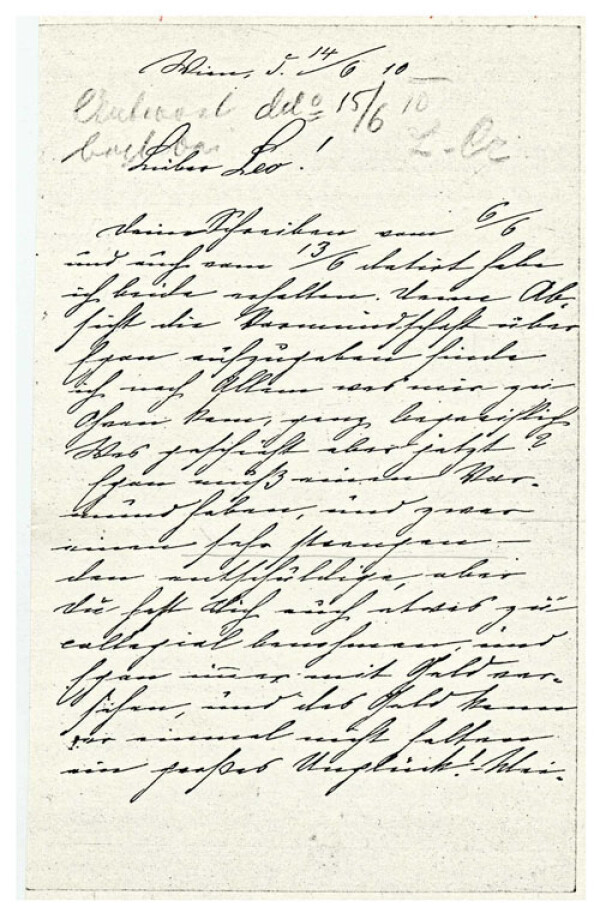 Wien, d. 14/6 10
Antwort ddo 15/6 10
L. Cz
Lieber Leo!
Deine Schreiben vom 6/6
und auch vom 13/6 datirt habe
ich beide erhalten. Deine Ab-
sicht die Vormundschaft über
Egon aufzugeben finde
ich nach Allem was mir zu
Ohren kam, ganz begreiflich
Was geschieht aber jetzt?
Egon muß einen Vor-
mund haben, und zwar
einen sehr strengen –
den entschuldige, aber
Du hast Dich auch etwas zu
collegial benohmen, und
Egon immer mit Geld ver-
sehen, und das Geld kann
er einmal nicht halten
ein großes Unglück! Mei-